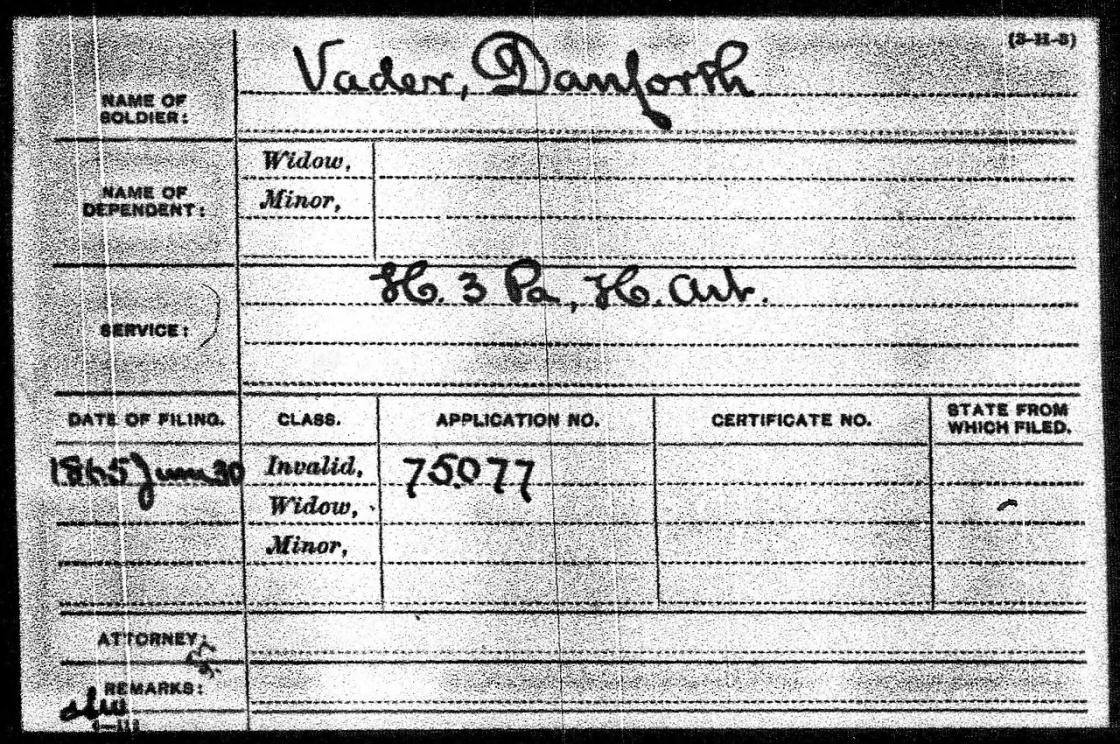 (3-H-3)
Vader, Danforth
NAME OF
SOLDIER:
Widow,
Minor,
NAME OF
DEPENDENT:
H. 3 Pa, H. Art.
SERVICE:
DATE OF FILING. CLASS. APPLICATION NO. CERTIFICATE NO. STATE FROM WHICH FILED.
1865 June 30 Invalid, 75.077
Widow,
Minor,
ATTORNEY:
REMARKS: